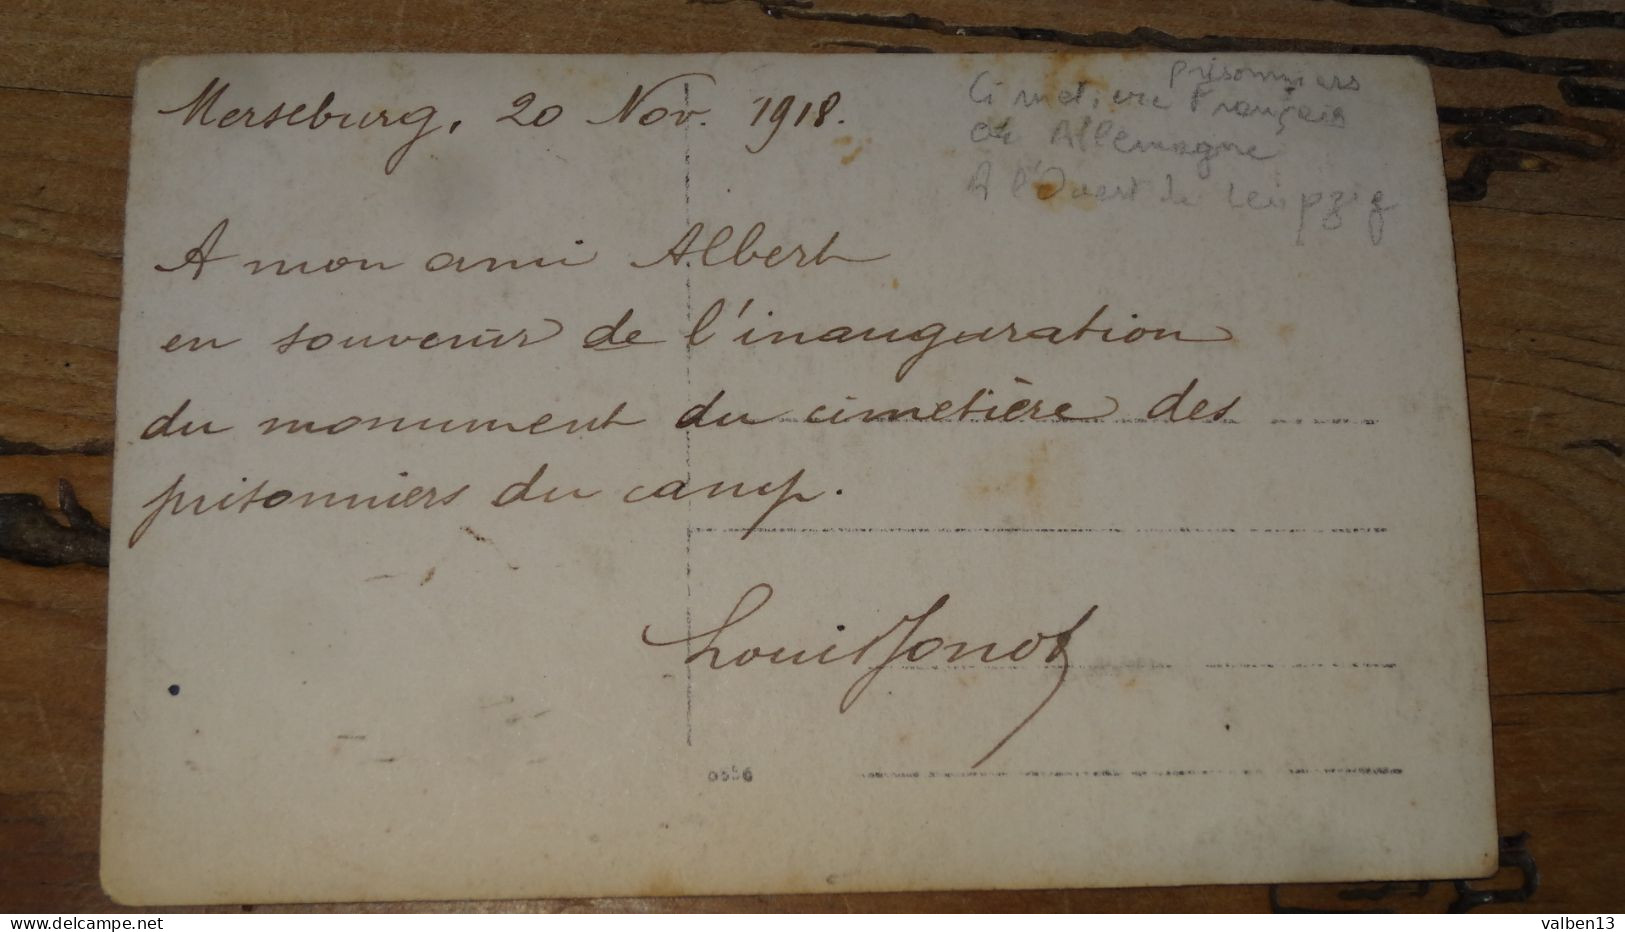 Merseburg, 20 Nov. 1918.
prisonniers
Cimetiere Français
en Allemagne
A l'Ouest de Leipzig
A mon ami Albert
en souvenir de l'inauguration
du monument du cimetière des
prisonniers du camp.
Louis Jonot
0556
valben13